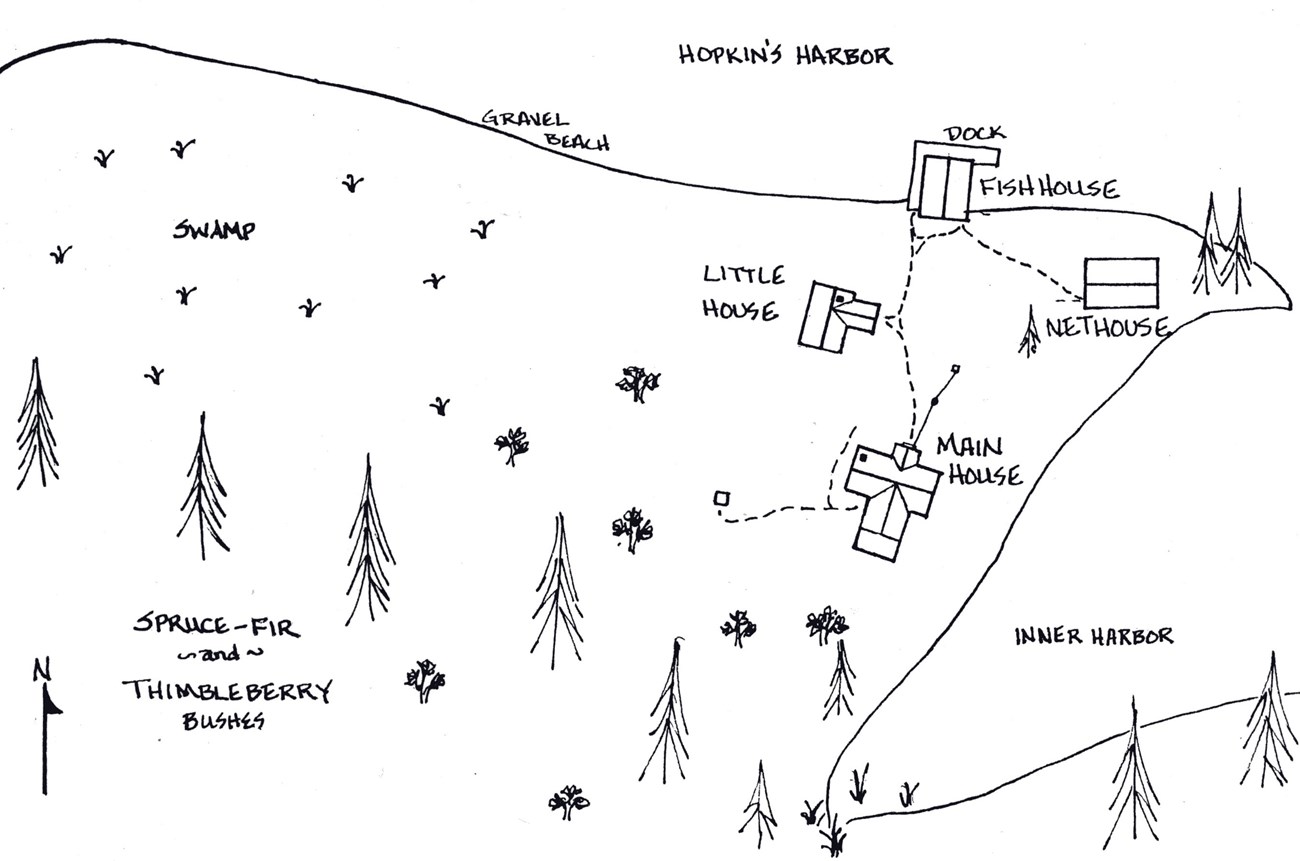 HOPKIN'S HARBOR
GRAVEL
BEACH
DOCK
FISHHOUSE
SWAMP
LITTLE
HOUSE
NETHOUSE
MAIN
HOUSE
SPRUCE-FIR
~and~
THIMBLEBERRY
BUSHES
INNER HARBOR
N